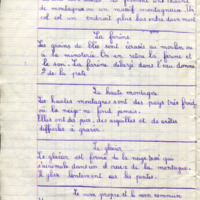 ou un massif montagneux. Un
col est un endroit plus bas entre deux mont
La farine
Les grains de blé sont écrasés au moulin ou
la minoterie. On en retire la farine et
le son. La farine délayée dans l'eau donne
de la pâte
La haute montagne
Les hautes montagnes sont des pays très froids
où la neige ne fond jamais.
Elles ont des pics, des aiguilles et des arêtes
difficiles à gravir.
Le glacier
Le glacier est formé de la neige tassée qui
s'accumule dans un creux de la montagne.
Il glisse lentement sur les pentes.
Le nom propre et le nom commun